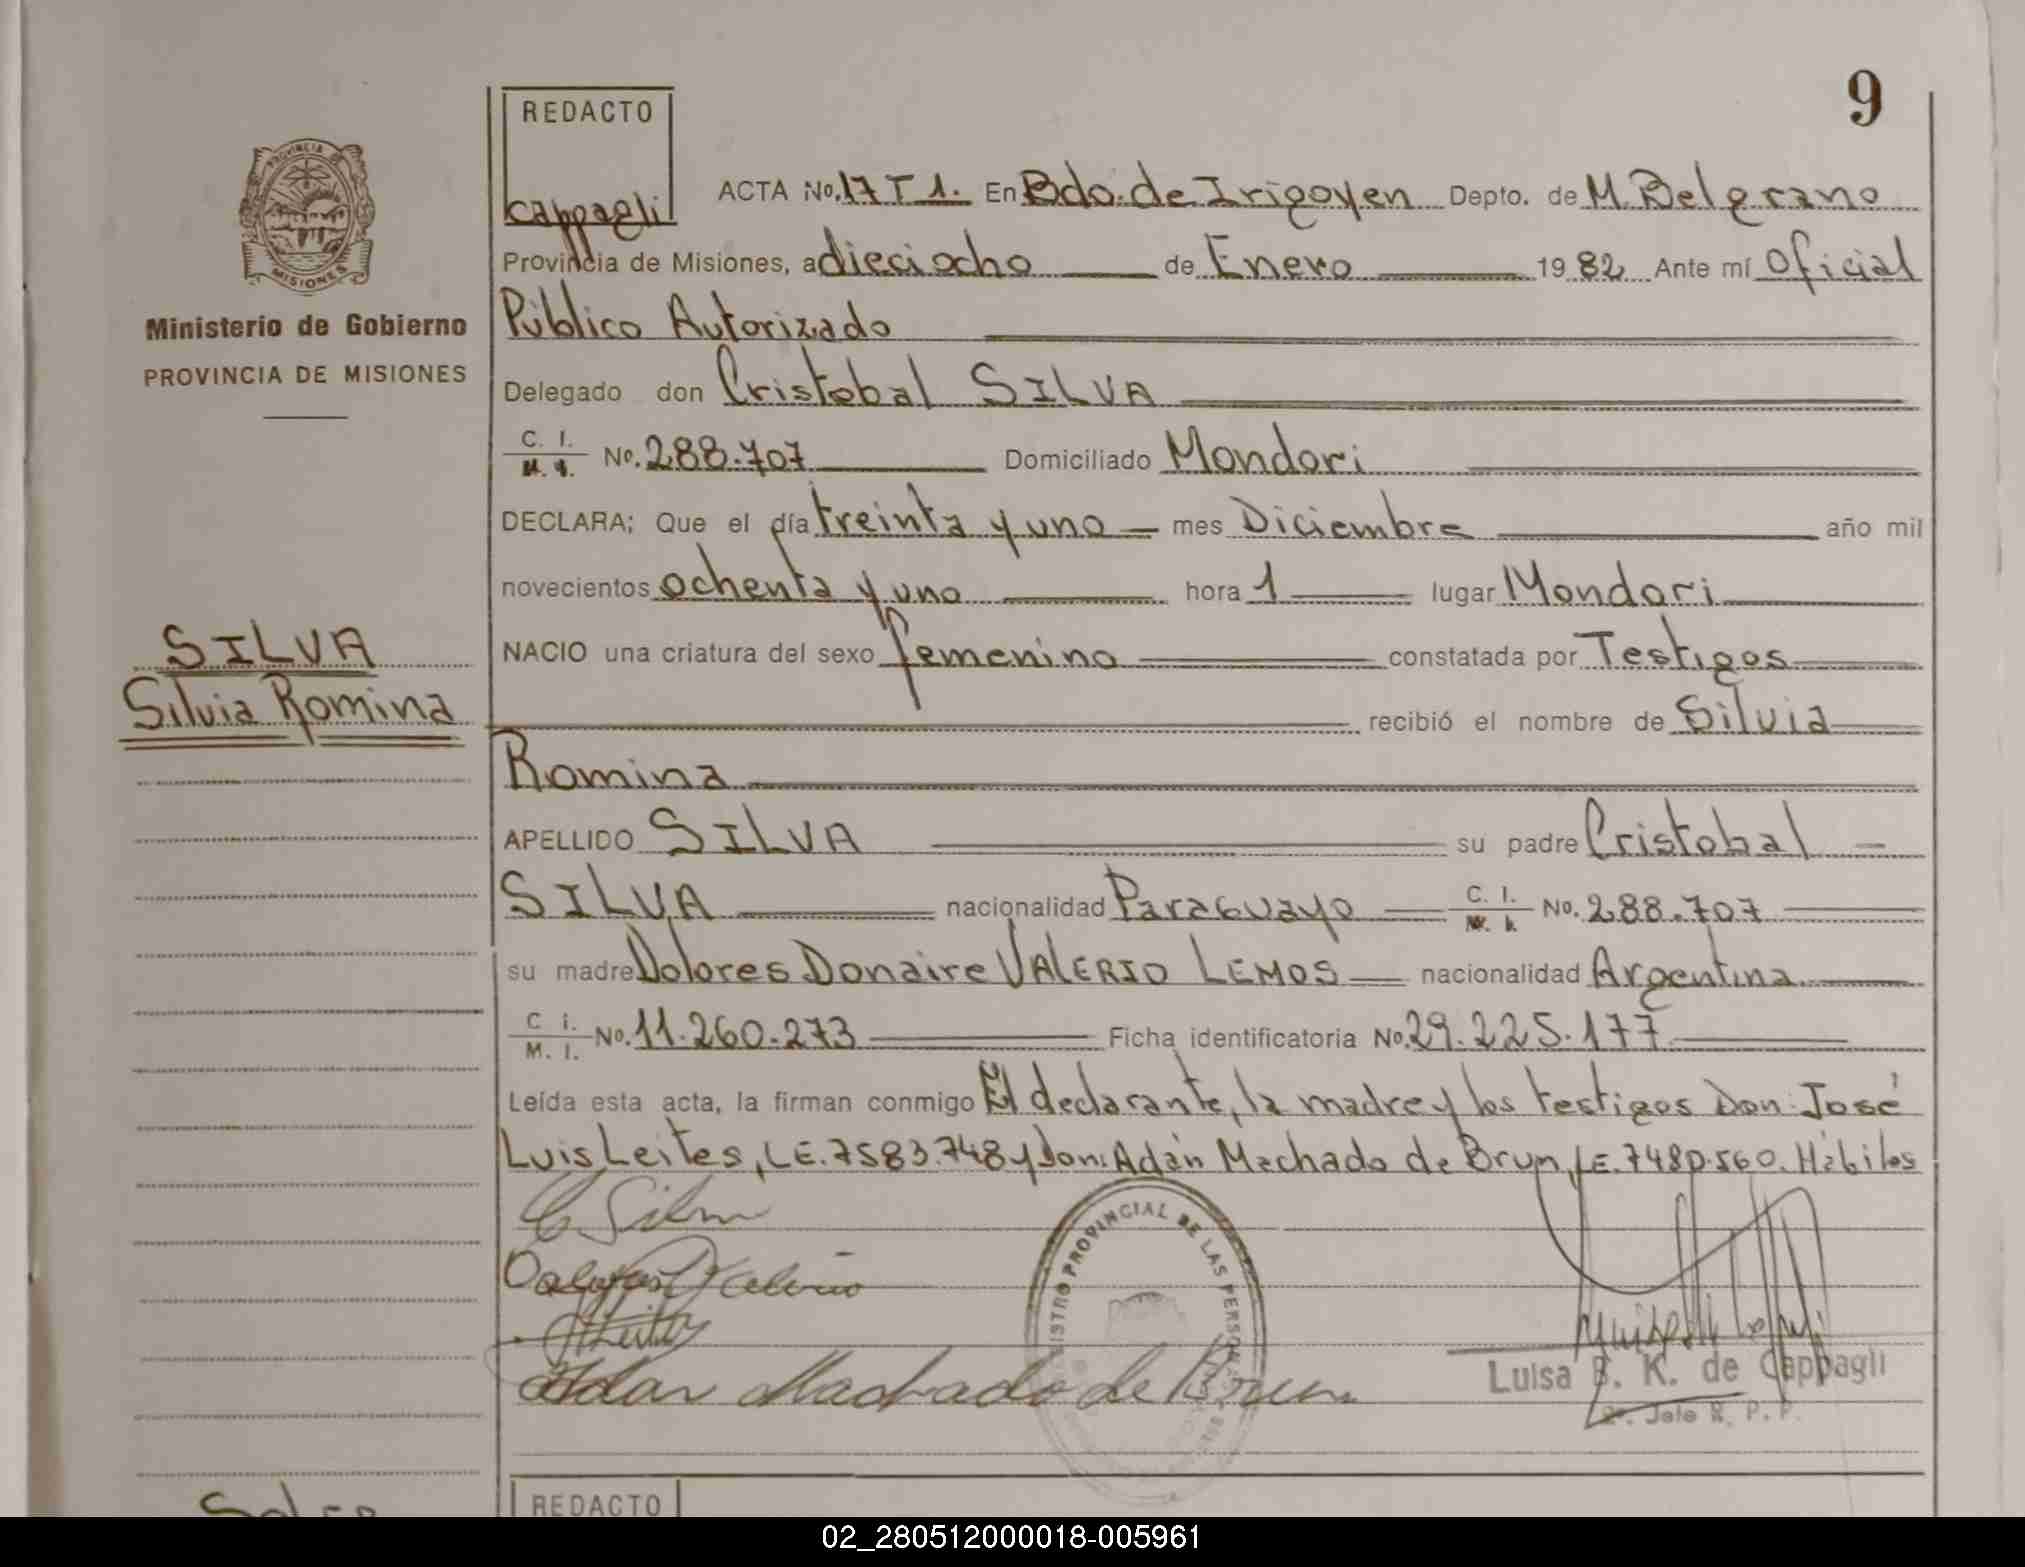 9
REDACTO
cappagli
PROVINCIA DE
MISIONES
Ministerio de Gobierno
PROVINCIA DE MISIONES
ACTA No. 17 T 1. En Bdo. de Irigoyen Depto. de M. Belgrano
Provincia de Misiones, a dieciocho de Enero 1982 Ante mí Oficial
Público Autorizado
Delegado don Cristobal SILVA
C. I. M. I. No. 288.707 Domiciliado Mondori
DECLARA: Que el día treinta y uno mes Diciembre año mil
novecientos ochenta y uno hora 1 lugar Mondori
SILVA
Silvia Romina
NACIO una criatura del sexo femenino constatada por Testigos
recibió el nombre de Silvia
Romina
APELLIDO SILVA su padre Cristobal
SILVA nacionalidad Paraguayo C. I. M. I. No. 288.707
su madre Dolores Donaire VALERIO LEMOS nacionalidad Argentina
C. I. M. I. No. 11.260.273 Ficha identificatoria No. 29.225.177
Leída esta acta, la firman conmigo El declarante, la madre y los testigos Don José
Luis Leites, LE. 7583.748 y don: Adán Machado de Brun, LE. 7480.560. Hábiles
C Silva
Adan Machado de Brum
REGISTRO PROVINCIAL DE LAS PERSONAS
Luisa B. K. de Cappagli
2º. Jefe R. P. P.
REDACTO
02_280512000018-005961